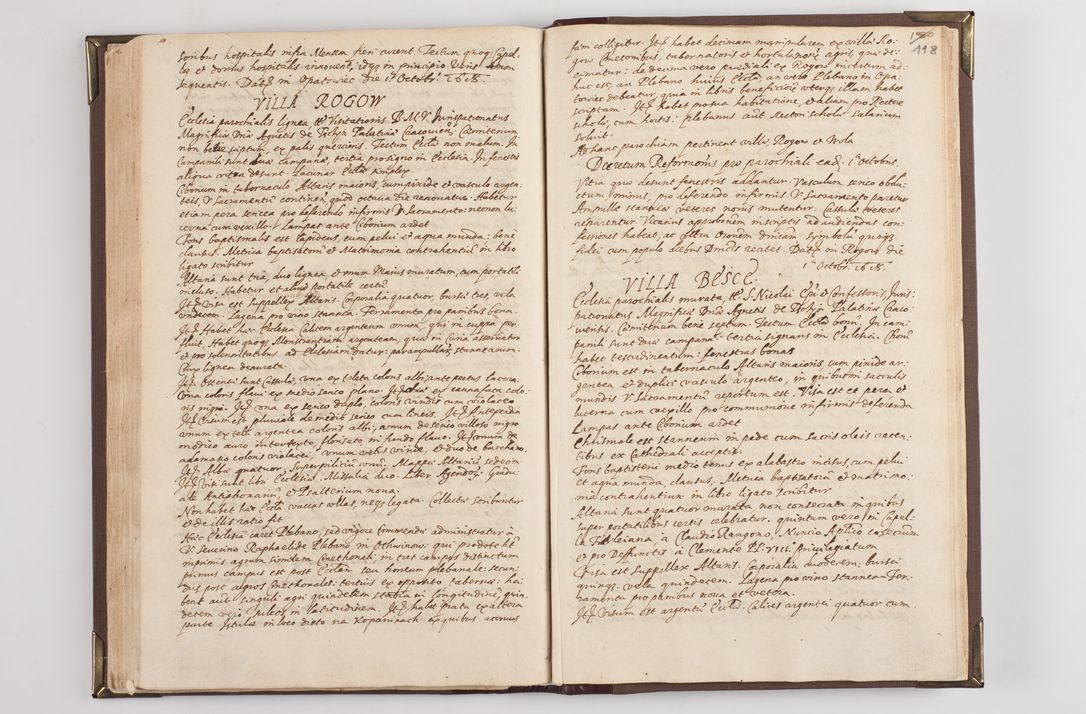 soribus hospitalis infra Mensem fieri curent. Tectum quoq Capel-
læ et domus hospitalis
sequentis. Datȝ in Opatowiec Die 1 Octobr 1618.
VILLA ROGOW
Ecclesia parochialis lignea, tt Visitationis B.M.V. Jurispationatus
Magnificæ Dnæ Agnetis de Tęczyn Palatinæ Cracovien: Cœmiterium
non bene septum ex palis quercinis. Tectum Eccliæ non malum. In
Campanili sunt duæ campanæ, tertia pro signo in Ecclesia. In fenestris
aliqua vitra desunt. Lacunar Eccliæ simplex
Ciborium in tabernaculo Altaris maioris, cum pixide et vasculo argen-
teis, V. Sacramentum continen, quod octava die renovatur. Habetur
etiam pera sericea pro deferendo infirmis V. Sacramento: necnon lu-
cerna cum vexillo. Lampas ante Ciborium ardet
Fons baptismalis est lapideus, cum pelui et aqua munda: bene
clausus. Metrica baptisatorū et Matrimonia contrahentiū in libro
ligato scribitur
Altaria sunt tria, duo lignea, et unum Maius muratum, cum portatili
incluso. Habetur et aliud portatile certū
Itȝ Visa est Suppellex Altaris. Corporalia quatuor, bursæ tres, vela
undecem. Lagena pro vino stannea. Ferramenta pro panibus bona.
Itȝ Habet hæc Ecclesia Calicem argenteum unum, qui in cuppa per-
fluit. Habet quoq Monstrantiam argenteam, quæ in Curia asservatur
et pro solennitatibus ad Ecclesiam datur: par ampullarū stannearum.
Crux lignea deaurata.
Itȝ Ostenti sunt Casulæ, una ex teleta coloris albi, ante pectus lacera.
Una coloris flavi ex medio serico plano. Itȝ alia ex
ris nigri. Itȝ una ex serico duplo, coloris viridis cum violaceo
Itȝ Visum est pluviale de medio serico cum lineis. Itȝ Antependia
unum ex tela argentea coloris albi, unum de serico villoso nigro
modico auro intertexto, florisato in fundo flavo. Itȝ unum de
adamasco coloris violacei, unum vetus viride, et duo de barchano.
Itȝ Albæ quatuor, Superpilicium unū. Mappæ Altariū sedecim
Itȝ Visi sunt libri Ecclesiæ. Missalia duo. Liber Agendorū. Gradu-
ale Antiphonariū, et Psalterium nona.
Non habet hæc Ecclia vaccas ullas, neq legata. Collectæ scribuntur
et de illis ratio fit
Hæc Ecclesia caret Plebano, sed vigore Commendæ administratur à
V. Severino Raphaelide Plebano in Othwinow: qui pro dote hēt
imprimis agrum similem Cmethonali: in tres campos distinctum
primus campus est post Eccliam seu hortum plebanale: secun-
dus post agros Cmethonales: tertius ex opposito tabernæ: ha-
bent autē singuli agri quindecem in longitudine, quin-
decem vero sulcos in latitudinem. Itȝ habet prata ex altera
parte Istulæ in loco dicto na Kopaninach ex quibus acervus
198
fœni colligitur. Itȝ habet decimam manipularem ex villa Ro-
gow Cmetonibus, tabernatoris et hortulanorū agris, quæ de-
cimatur: de decima vero prædiali ex Rogow incertum ad-
huc est, an Plebano huius Eccliæ an vero Plebano in Opa-
towiec debeatur, quia in libris beneficiorū uterq illam habet
scriptam. Itȝ habet pro sua habitatione, et aliam pro Rectore
scholæ, cum hortis: plebanus autē Rectori scholæ salarium
solvit.
Ad hanc parochiam pertinent villæ Rogow et Wola
Decretum Reformonis pro parochiali eadȝ. 1 octobris.
Vitra quæ desunt fenestris addantur. Vasculum serico obdu-
ctum ominus, pro deferendo infirmis V. Sacramento paretur
Ampullæ stanneæ veteres novis mutentur. Casulæ veteres
reparentur. Vicarius approbaonem in scriptis ad audiendas con-
fessiones habeat, ac ultra Oraonem Dnicam Symbolū quoq
fidei cum populo diebus Dnicis recitet. Datȝ in Rogow die
1 Octobr. 1618.
VILLA BESCE.
Ecclesia parochialis murata, tt. S. Nicolai Epi et Confessoris, Juris-
pationatus Magnificæ Dnæ Agnetis de Tęczyn Palatinæ Craco-
viensis. Cœmiterium bene septum. Tectum Eccliæ bonū. In cam-
panili sunt duæ campanæ, tertia signans in Ecclesia. Chorū
habet testudineatum: fenestras bonas
Ciborium est in tabernaculo Altaris maioris, cum pixide ar-
gentea et duplici vasculo argenteo, in quibus in sacculis
mundis V. Sacramentū repertum est. Visa est et pera et
lucerna cum vexillo pro communione infirmis deferenda
Lampas ante Ciborium ardet
Chrismale est stanneum in pede cum sacris oleis recen-
tibus ex Cathedrali acceptis
Fons baptisterii medio templi ex alabastro incisus, cum pelui
et aqua munda, clausus. Metrica baptisatorū et matrimo-
nia contrahentium in libro ligato scribitur
Altaria sunt quatuor murata non consecrata in quibus
super portatilibus certis celebratur. quintum vero in Capel-
la Firleiana, à Claudio Rangono, Nuncio Aplico consecrum
et pro Deffunctis à Clemente PP. VIII. privilegiatum
Visa est Suppellex Altaris. Corporalia duodecem, bursæ
quinq, vela quindecem. Lagena pro vino stannea. Fer-
ramenta pro panibus nova et vetera.
Itȝ Visum est argentū Eccliæ. Calices argentei quatuor cum.